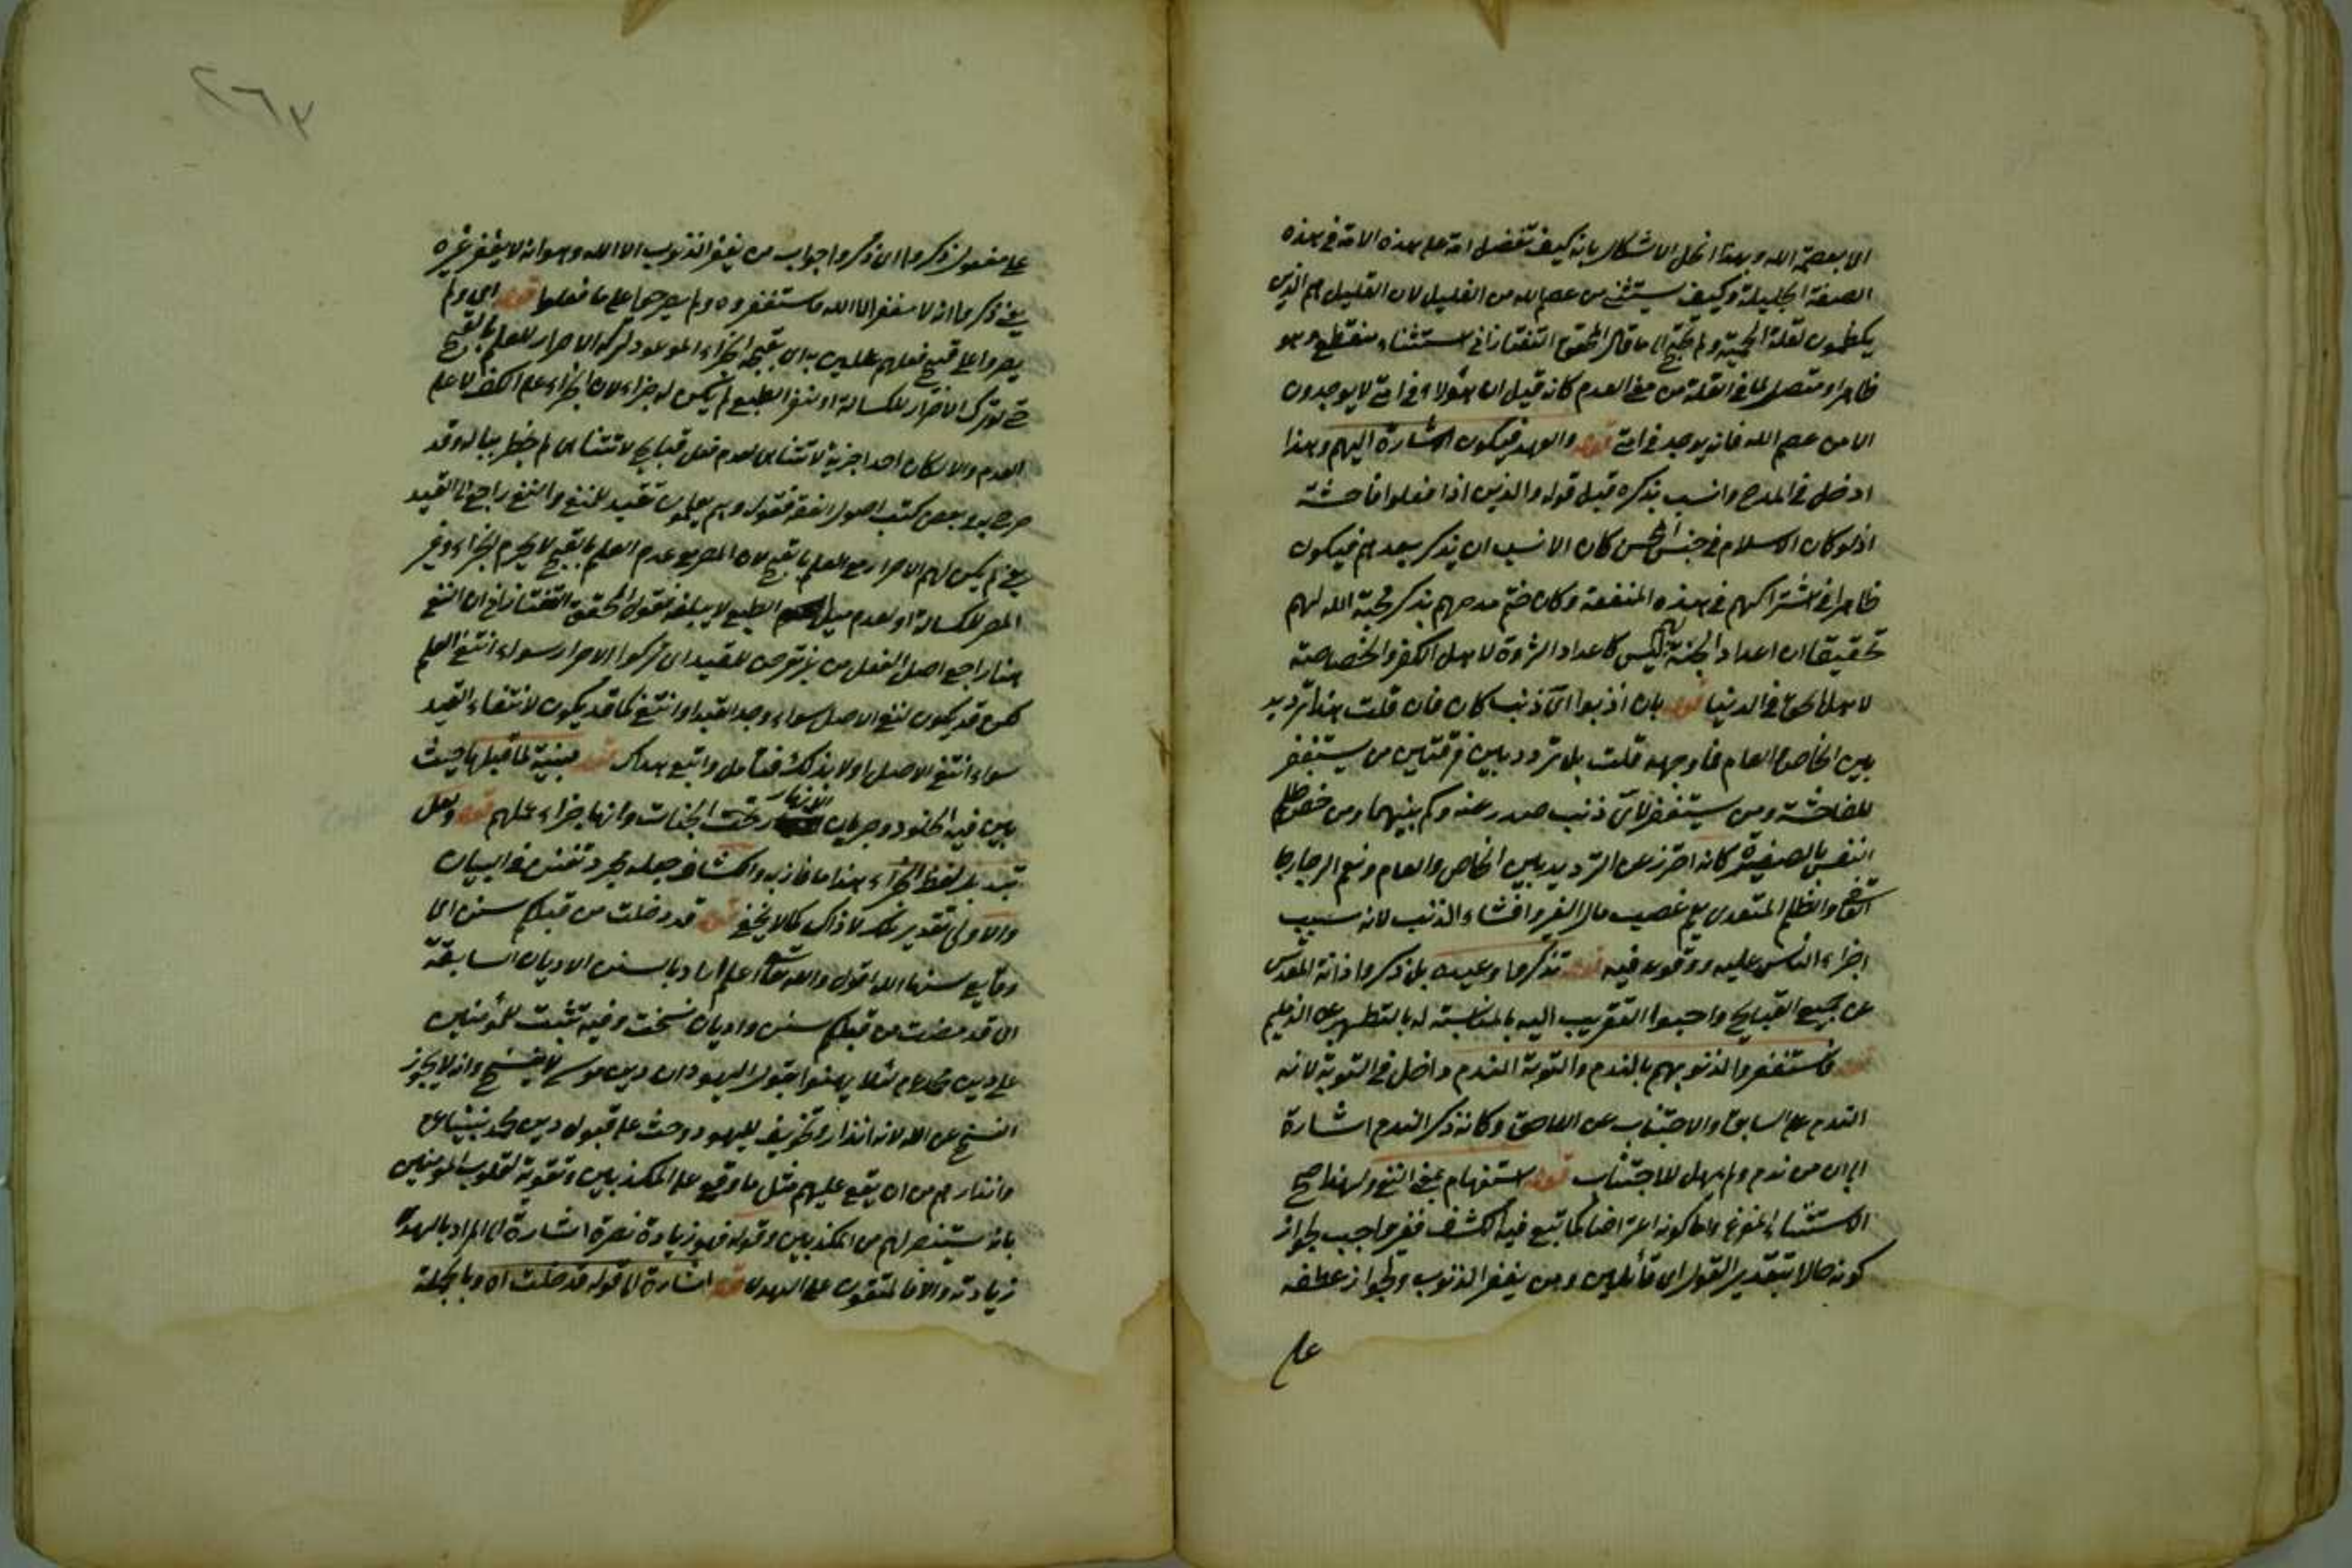 الا بعصمة الله وبهذا انحل الاشكال بانه كيف تفضل امة على هذه الامة في هذه
الصفة الجليلة وكيف يستثنى من عصم الله من القليل لان القليل هم الذين
يكظمون لقلة الحمية ولم يحتج الى ما قال المحقق التفتازاني استثناء منقطع وهو
ظاهر او متصل لما في القلة من معنى العدم كانه قيل ان هؤلاء في امتي لا يوجدون
الا من عصم الله فانه يوجد في امتي قوله والعهد فيكون اشارة اليهم وهذا
ادخل في المدح وانسب بذكره قبل قوله والذين اذا فعلوا فاحشة
اذ لو كان الاسلام في جنس المحسن كان الانسب ان يذكر بعدهم فيكون
ظاهرا في اشتراكهم في هذه المنفعة وكان ختم مدحهم بذكر محبة الله لهم
تحقيقا ان اعداد الجنة لهم ليس كاعداد الثروة لاهل الكفر والخصاصة
لاهل الحق في الدنيا قوله بان اذنبوا اي ذنب كان فان قلت هذا ترديد
بين الخاص والعام فما وجهه قلت بل تردد بين فرقتين من يستغفر
للفاحشة ومن يستغفر لاي ذنب صدر عنه وكم بينهما ومن خص ظلم
النفس بالصغيرة كانه احترز عن الترديد بين الخاص والعام ونعم الرجا رجا
والظلم المتعدي يعم غصب مال الغير وافشاء الذنب لانه سبب
اجراء الناس عليه ووقوعه فيه قوله تذكروا وعيده بل ذكروا ذاته المقدس
عن جميع القبايح واحبوا التقريب اليه بالمناسبة له بالتطهير عن الذميم
قوله فاستغفروا لذنوبهم بالندم والتوبة الندم داخل في التوبة لانه
الندم على السابق والاجتناب عن اللاحق وكانه ذكر الندم اشارة
الى ان من ندم ولم يمهل للاجتناب قوله استفهام بمعنى النفي ولهذا صح
الاستثناء المفرغ واما كونه اعتراضا كما تبع فيه الكشاف فغير واجب لجواز
كونه حالا بتقدير القول اي قائلين ومن يغفر الذنوب ولجواز عطفه
على
على مفعول ذكروا اي ذكروا جواب من يغفر الذنوب الا الله وهو انه لا يغفر غيره
يعني ذكروا انه لا يغفر الا الله فاستغفروه ولم يصروا على ما فعلوا قوله اي ولم
يصروا على قبيح فعلهم عالمين به اي الجزاء الموعود لترك الاصرار للعلم بالقبح
حتى لو ترك الاصرار للكسالة او لنفر الطبع لم يكن له جزاء لان الجزاء على الكف لا على
العدم والا لكان لاحد اجزية لا تتناهى لعدم فعل قبايح لا تتناهى لم يخطر بباله وقد
صرح به في بعض كتب اصول الفقه فقوله وهم يعلمون تقييد للنفي والنفي راجع الى القيد
يعني لم يكن لهم الاصرار مع العلم بالقبح لان المصر مع عدم العلم بالقبح لا يحرم الجزاء وغير
المصر للكسالة او لعدم ميل الطبع لا يبلغه فقول المحقق التفتازاني ان النفي
هنا راجع اصل الفعل من غير تعرض للقيد اي تركوا الاصرار سواء انتفى العلم
لكن قد يكون لنفي الاصل سواء وجد القيد او انتفى كما قد يكون لانتفاء القيد
سواء انتفى الاصل او لا بذلك فتامل واتبع هداك قوله مبينة لما قبلها حيث
بين فيه الخلود وجريان الانهار تحت الجنات وانها جزاء عملهم قوله ولعل
تبديل لفظ الجزاء هذا ما فاز به والكشاف جعله مجرد تفنن في البيان
والاولى تقدير ذلك كما لا يخفى قوله قد خلت من قبلكم سنن اي
وقايع سنها الله اقول والله تعالى اعلم اراد بالسنن الاديان السابقة
اي قد مضت من قبلكم سنن واديان نسخت وفيه تثبيت للمؤمنين
على دين محمد عم لئلا يهنوا بقول اليهود ان دين موسى لا ينسخ وانه لا يجوز
النسخ على الله لانه انذار وتخويف لليهود وحث على قبول دين محمد نبينا عم
وانذارهم من ان يقع عليهم مثل ما وقع على المكذبين وتقوية لقلوب المؤمنين
بانه سينصر لهم من المكذبين وقوله فهو زيادة نصرة اشارة الى المراد بالهدى
زيادته والا فالمتقون على الهدى قوله اشارة الى قوله قد خلت اه وبالجملة